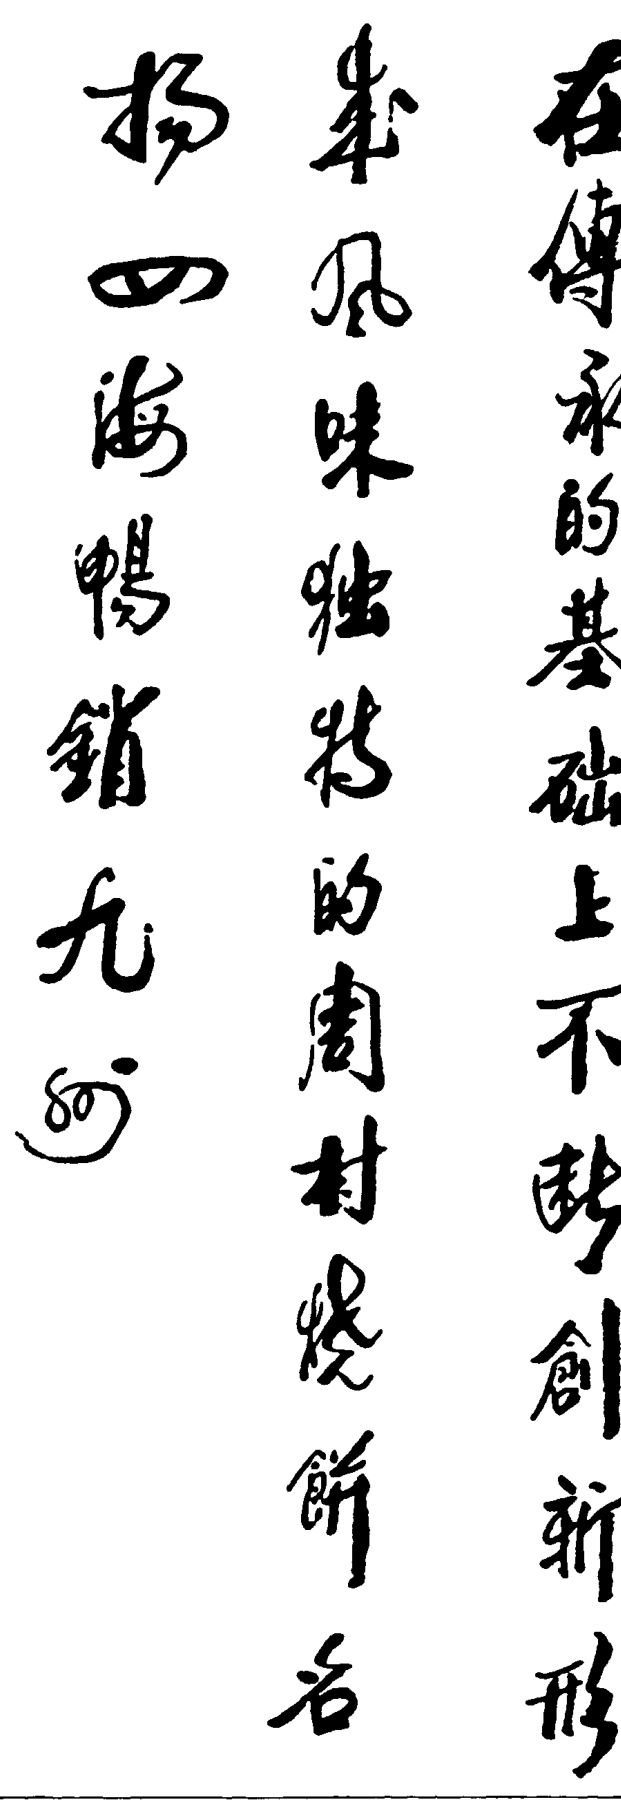 在傳承的基础上不断創新形
成風味独特的周村燒餅名
揚四海暢銷九州